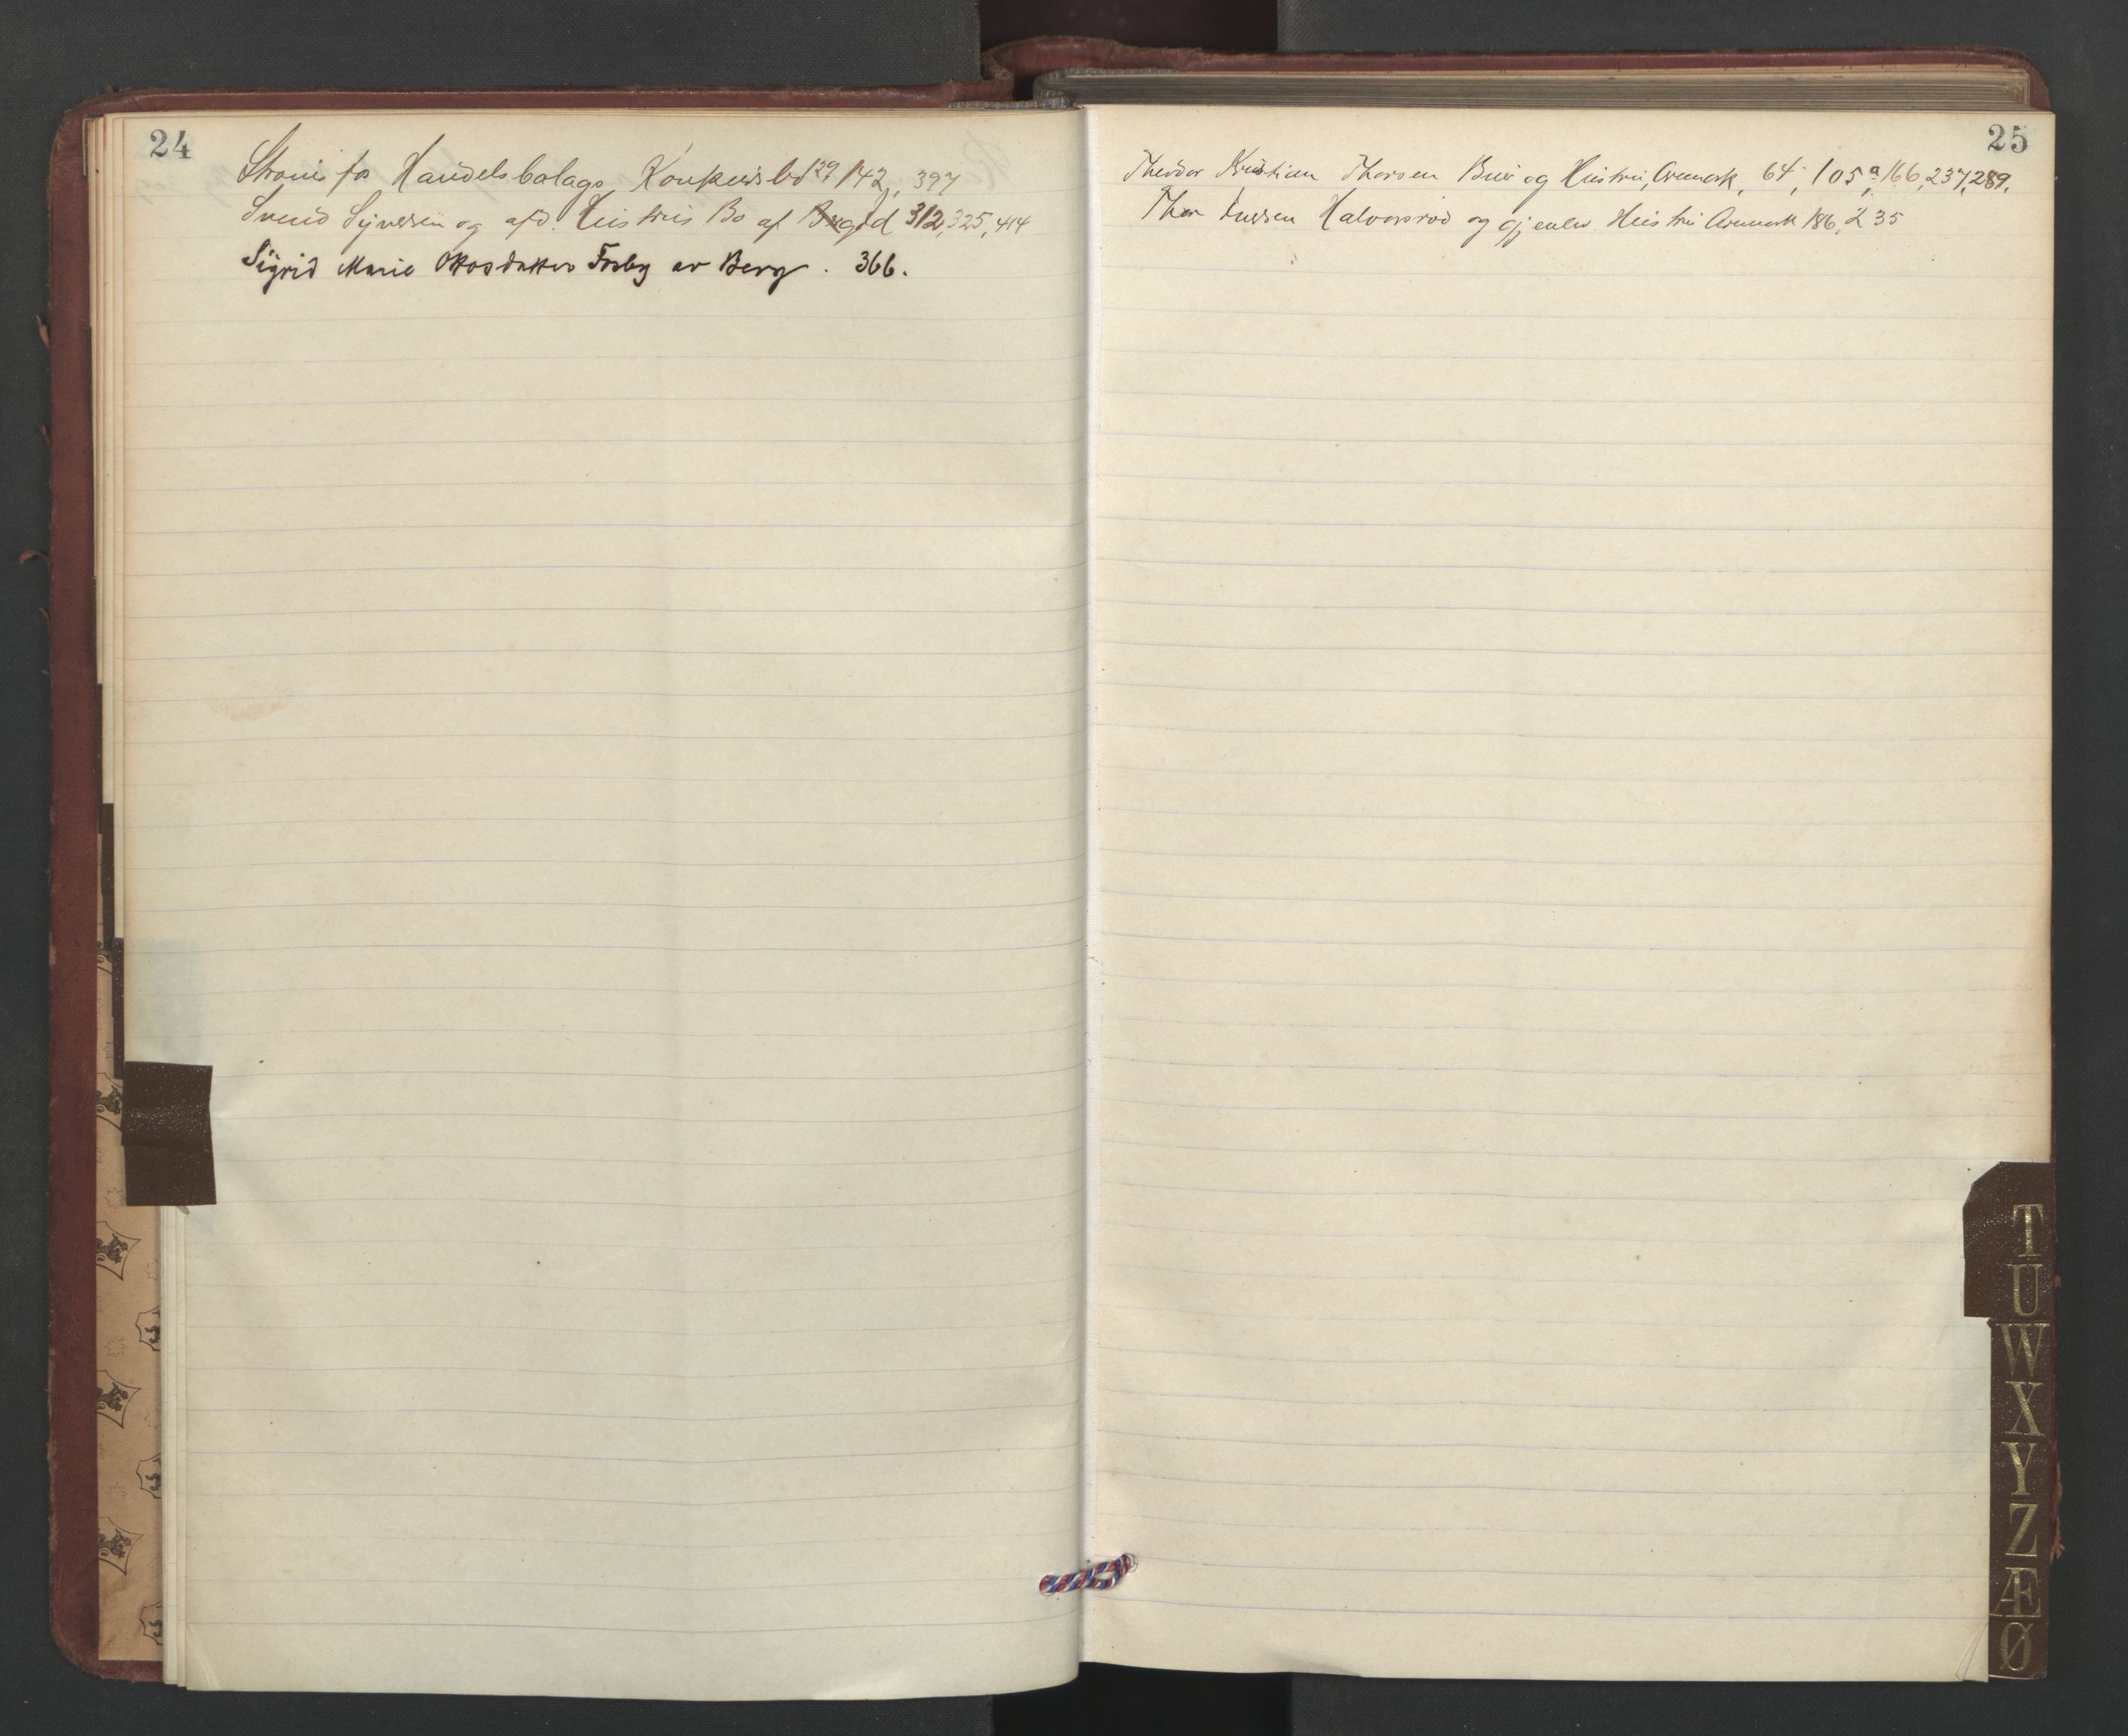 24
Strömsfos Handelsbolags Konkursbo 129, 142, 397
Svend Syversen og afd. Hustrus Bo af 312, 325, 414
Sigrid Marie Ottosdatter Fosby av Berg. 366.
25
Theodor Kristian Thorsen Buer og Hustru, Aremark, 64, 105a, 166, 237, 289.
Thor Iversen Halvorsrød og gjenlev. Hustru Aremark 186, 235
T
U
W
X
Y
Z
Æ
Ø